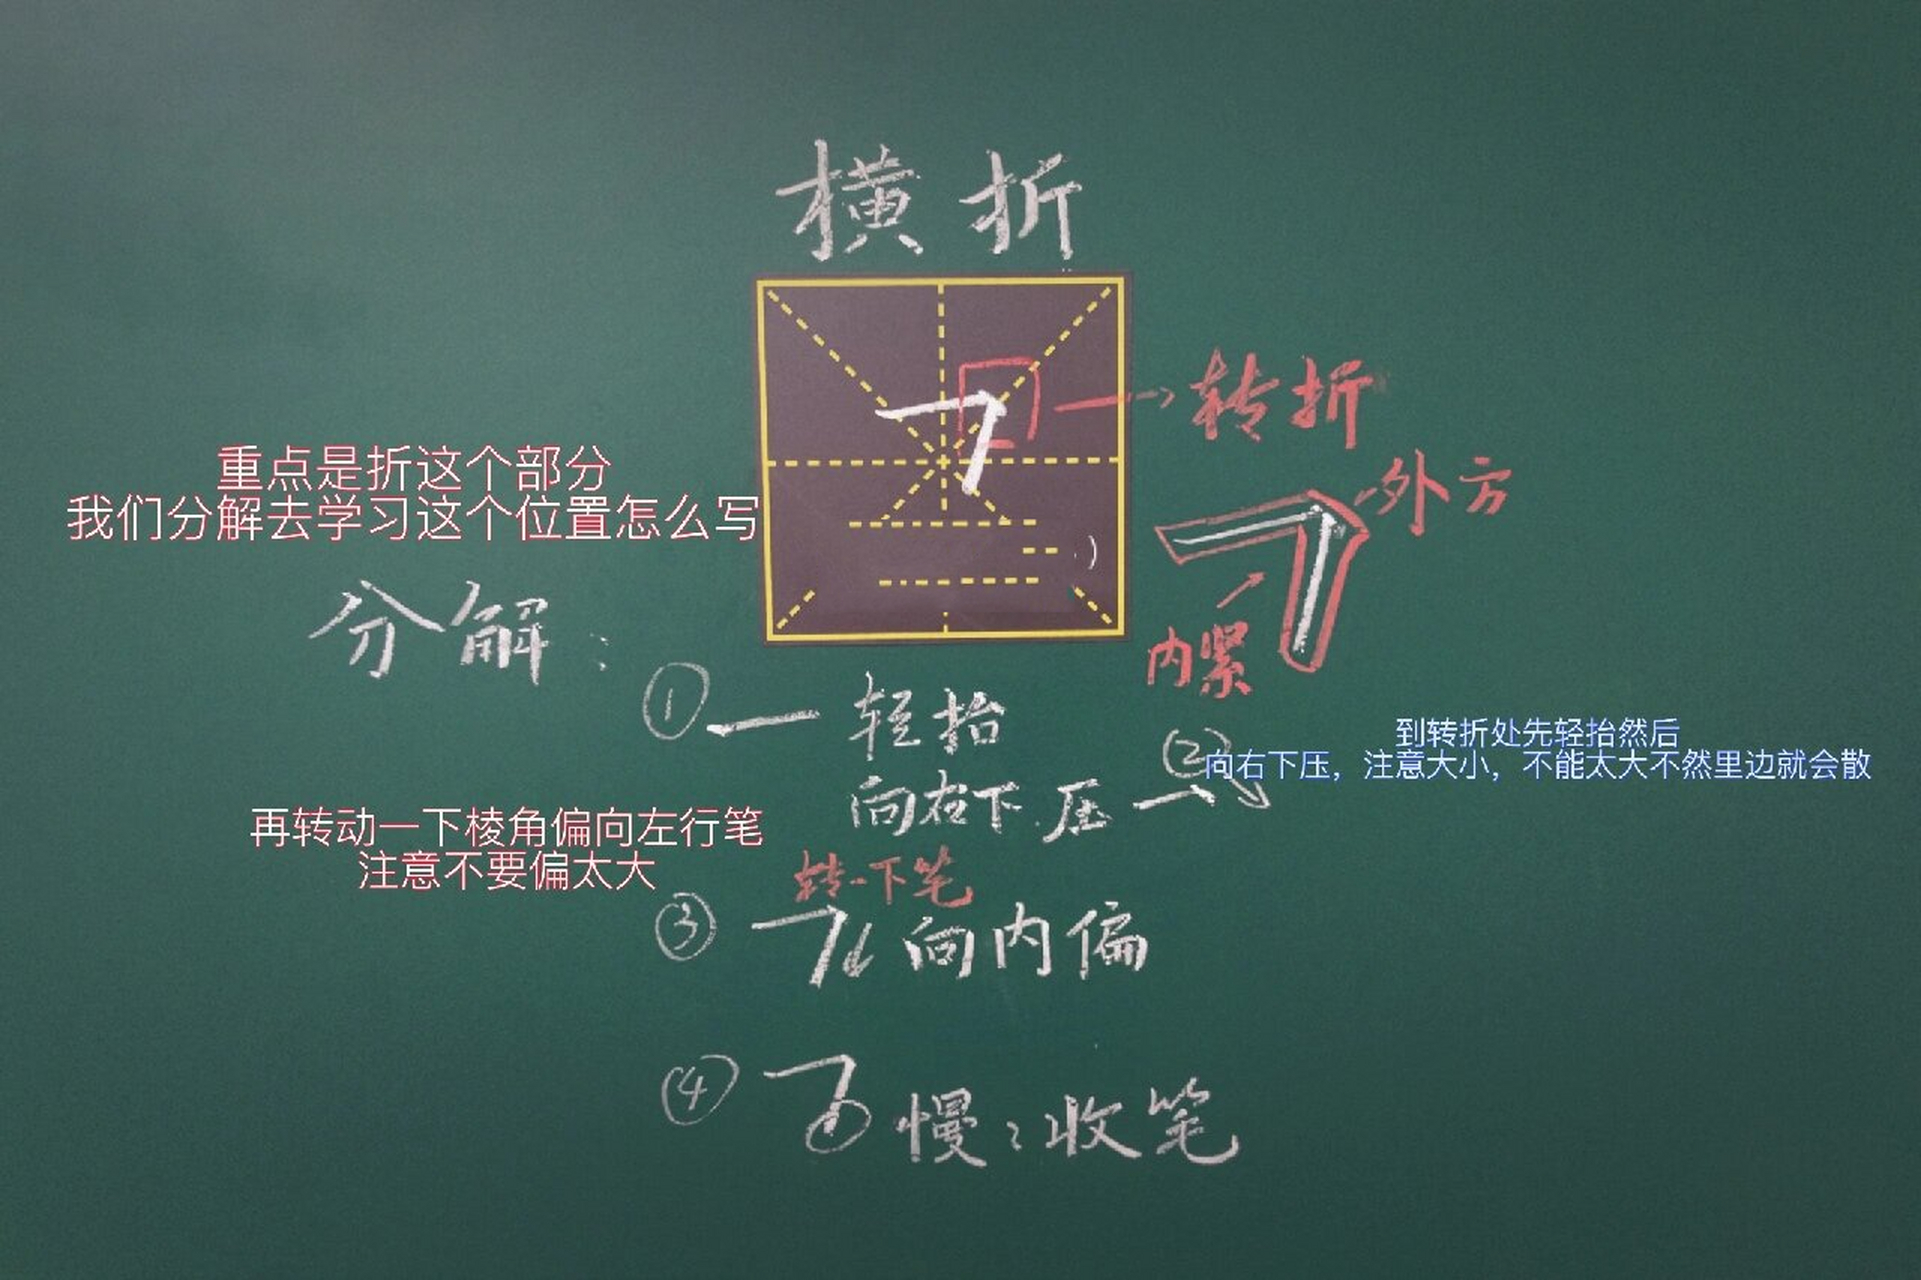 横折
转折
外方
内紧
重点是折这个部分
我们分解去学习这个位置怎么写
分解：
① 一 轻抬
向右下压
②
到转折处先轻抬然后
向右下压，注意大小，不能太大不然里边就会散
再转动一下棱角偏向左行笔
注意不要偏太大
转一下笔
③ 向内偏
④ 慢々收笔